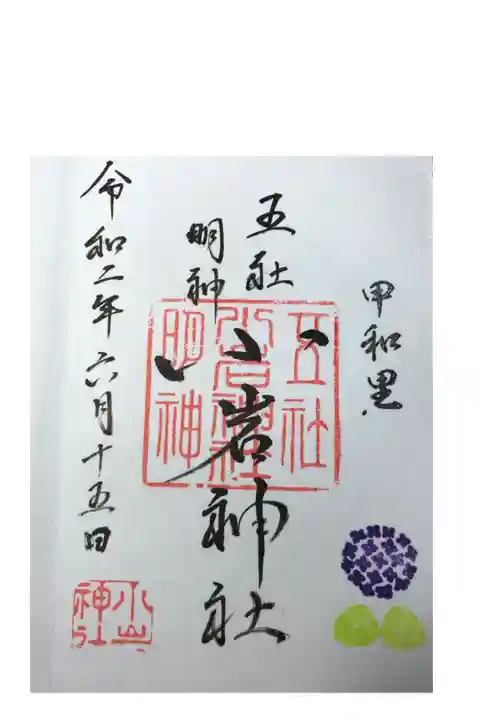 甲和里
五社
明神
小岩神社
五社
小岩神社
明神
令和二年六月十五日
小岩
神社